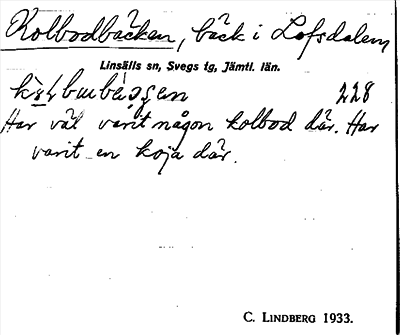 Kolbodbäcken, bäck i Lofsdalen
Linsälls sn, Svegs tg, Jämtl. län.
228
Har väl varit någon kolbod där. Har
varit en koja där.
C. LINDBERG 1933.